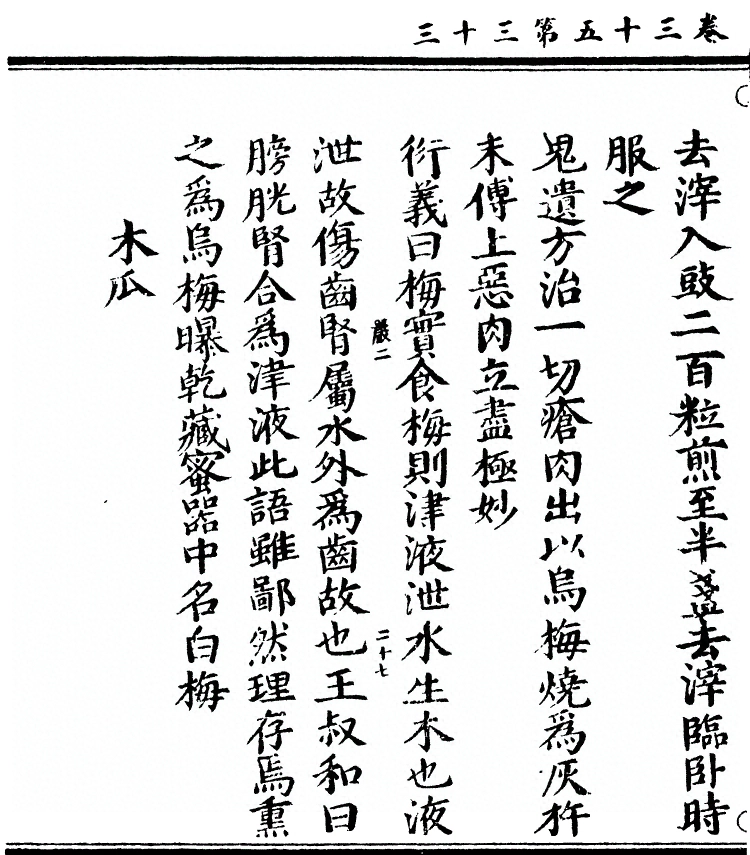 卷三十五第三十三
去滓入豉二百粒煎至半盞去滓臨卧時
服之
鬼遺方治一切瘡肉出以烏梅燒為灰杵
末傅上惡肉立盡極妙
衍義曰梅實食梅則津液泄水生木也液
嚴二
二十七
泄故傷齒腎屬水外為齒故也王叔和曰
膀胱腎合為津液此語雖鄙然理存焉熏
之為烏梅曝乾藏蜜器中名白梅
木瓜